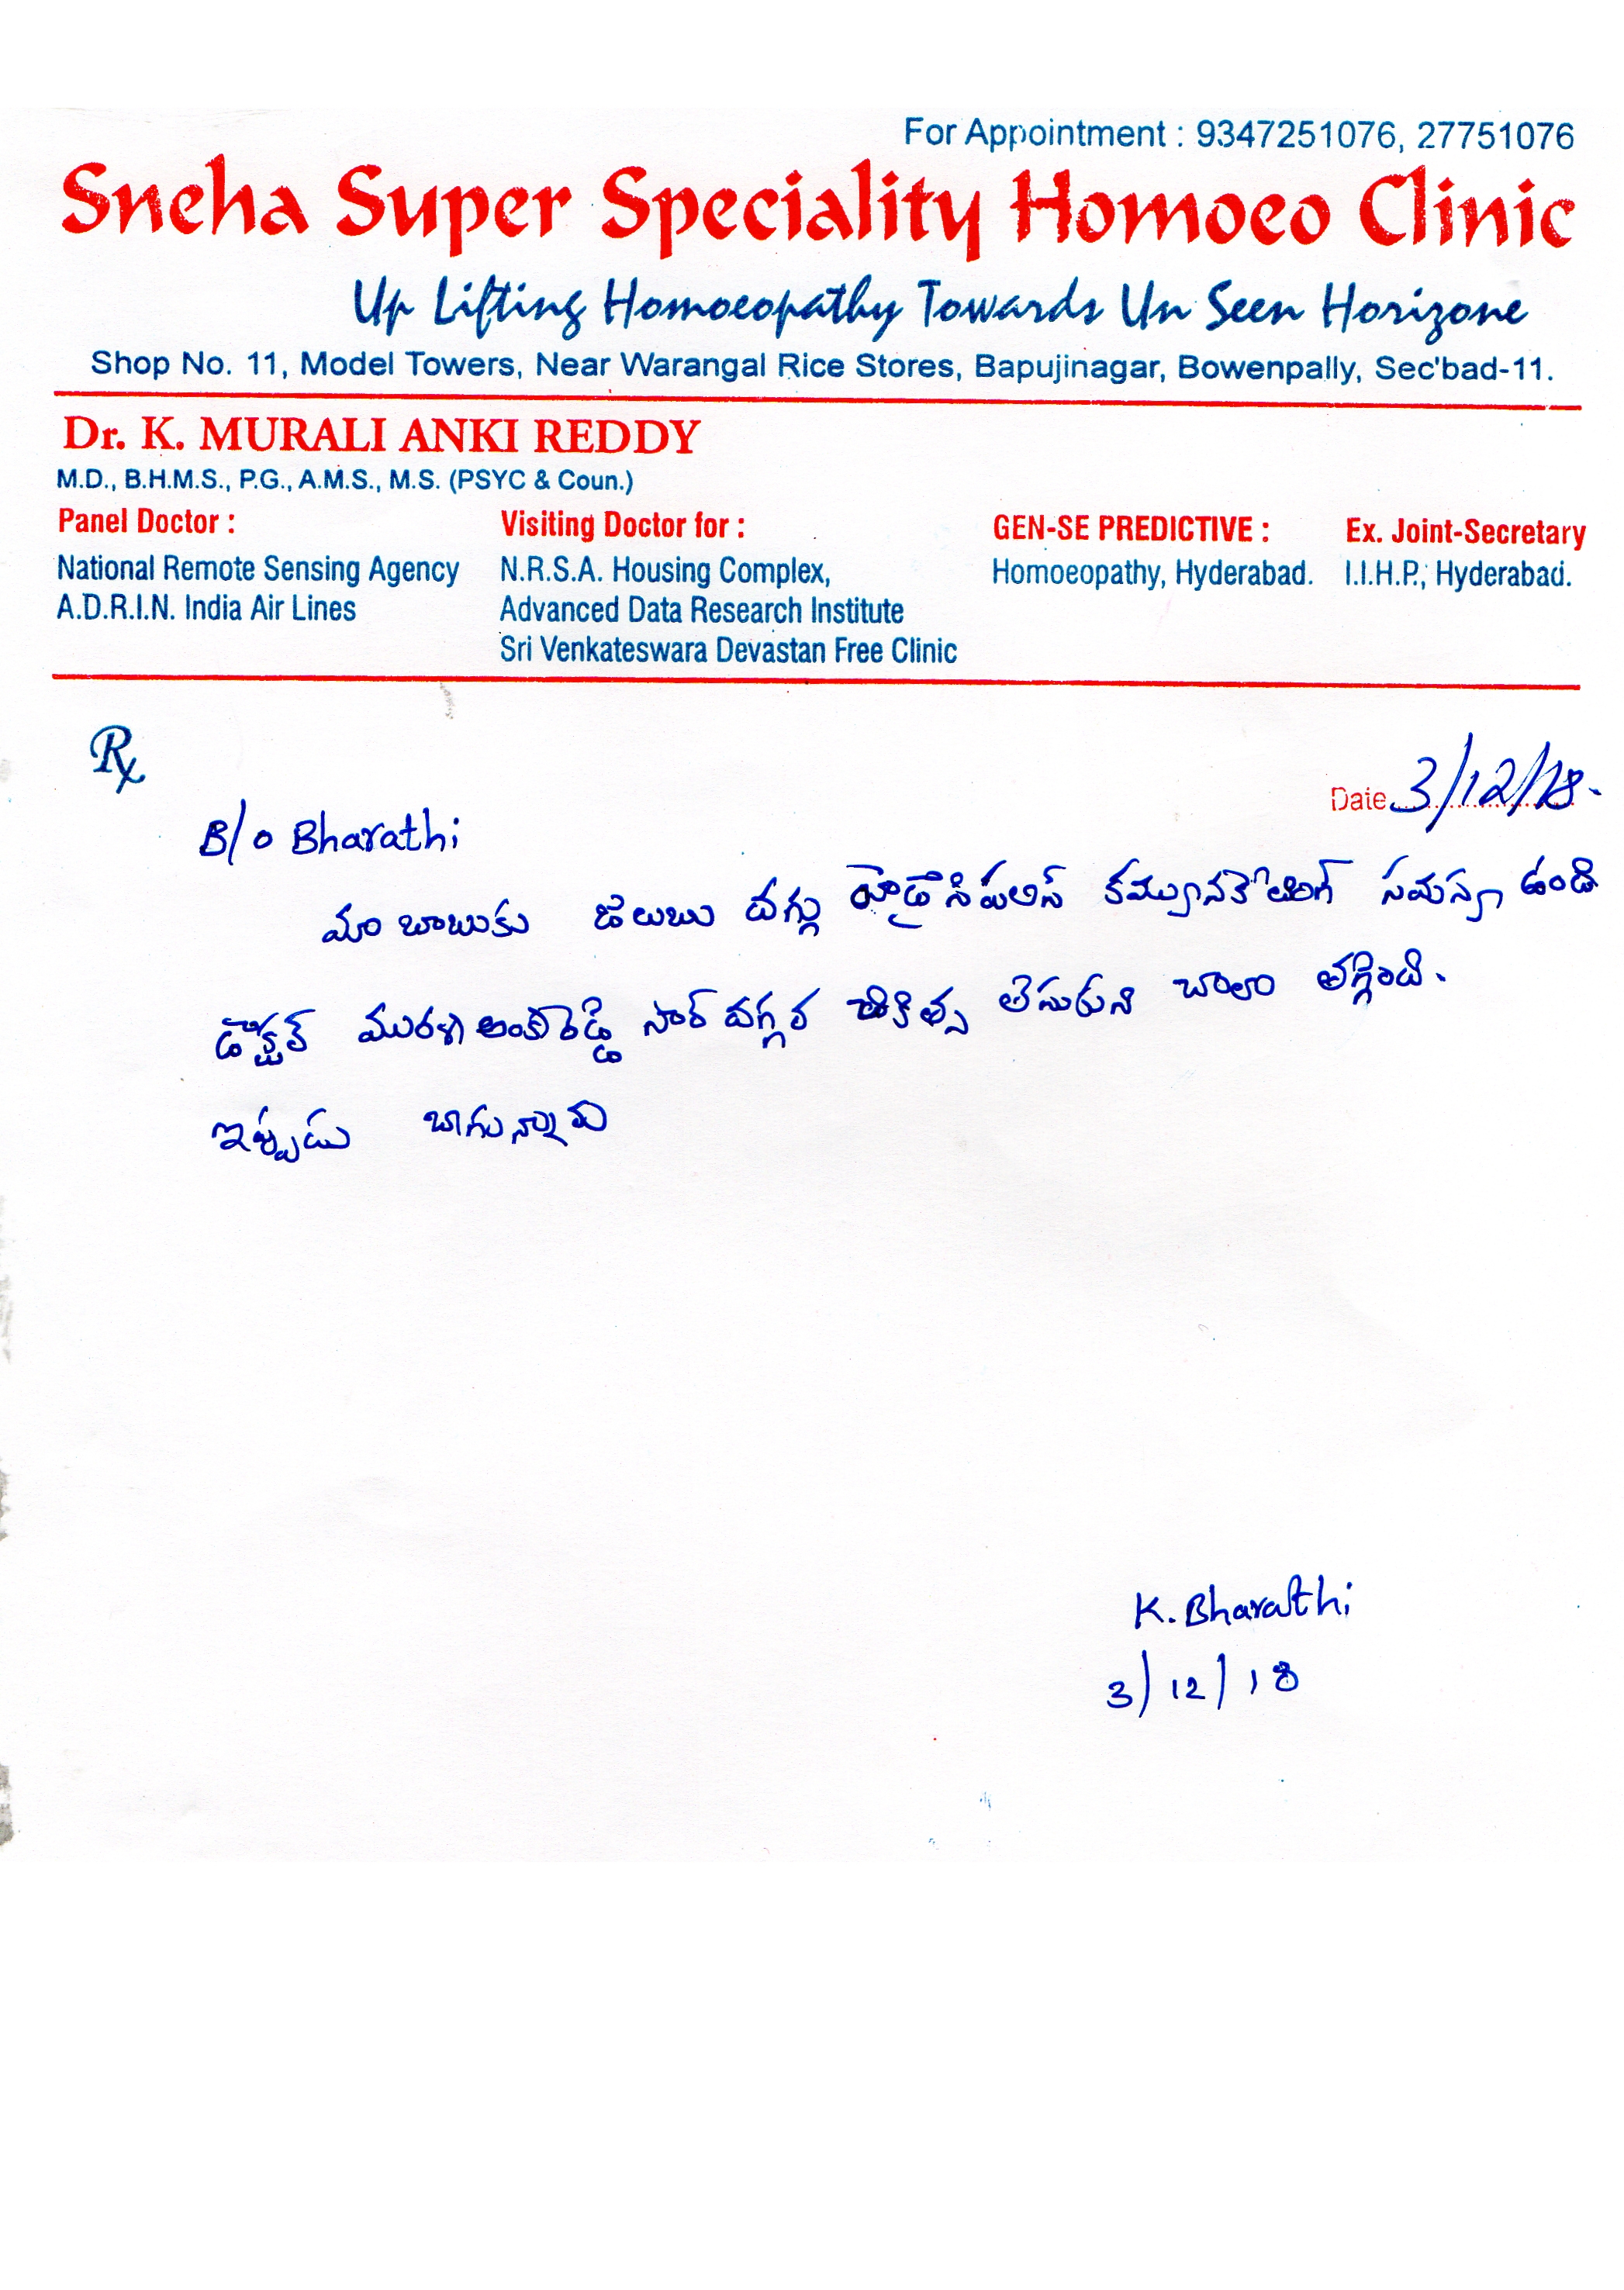 For Appointment : 9347251076, 27751076
Sneha Super Speciality Homoeo Clinic
Up Lifting Homoeopathy Towards Un Seen Horizone
Shop No. 11, Model Towers, Near Warangal Rice Stores, Bapujinagar, Bowenpally, Sec'bad-11.
Dr. K. MURALI ANKI REDDY
M.D., B.H.M.S., P.G., A.M.S., M.S. (PSYC & Coun.)
Panel Doctor :
National Remote Sensing Agency
A.D.R.I.N. India Air Lines
Visiting Doctor for :
N.R.S.A. Housing Complex,
Advanced Data Research Institute
Sri Venkateswara Devastan Free Clinic
GEN-SE PREDICTIVE :
Homoeopathy, Hyderabad.
Ex. Joint-Secretary
I.I.H.P., Hyderabad.
Rx
Date 3/12/18.
B/o Bharathi
మా బాబుకు జలుబు దగ్గు సమస్య ఉంది
డాక్టర్ మురళి అంకిరెడ్డి సార్ దగ్గర చికిత్స చాలా తగ్గింది.
ఇప్పుడు బాగున్నాడు
K. Bharathi
3/12/18